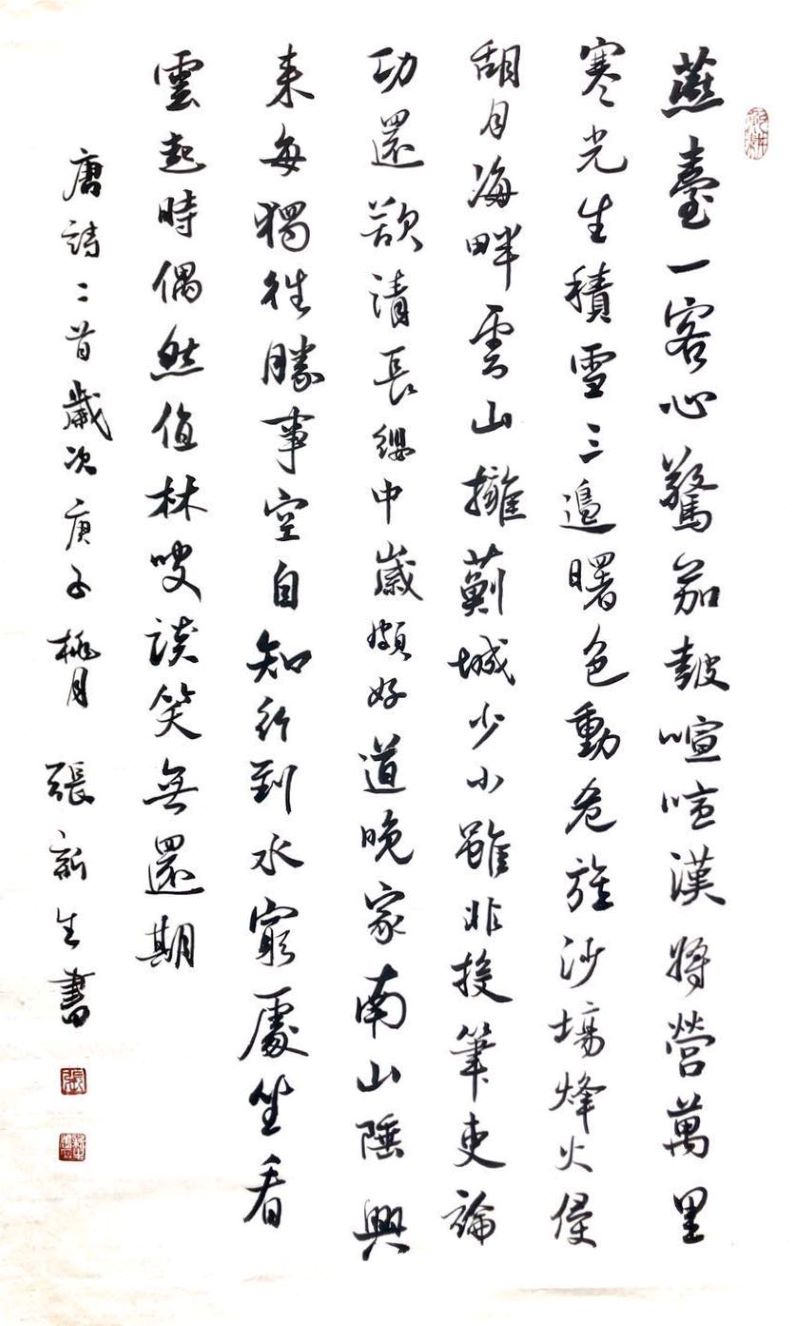 燕臺一客心驚笳鼓喧喧漢將營萬里
寒光生積雪三邊曙色動危旌沙場烽火侵
胡月海畔雲山擁薊城少小雖非投筆吏論
功還欲清長纓中歲頗好道晚家南山陲興
来每獨往勝事空自知行到水窮處坐看
雲起時偶然值林叟談笑無還期
唐詩二首歲次庚子桃月 張新生書